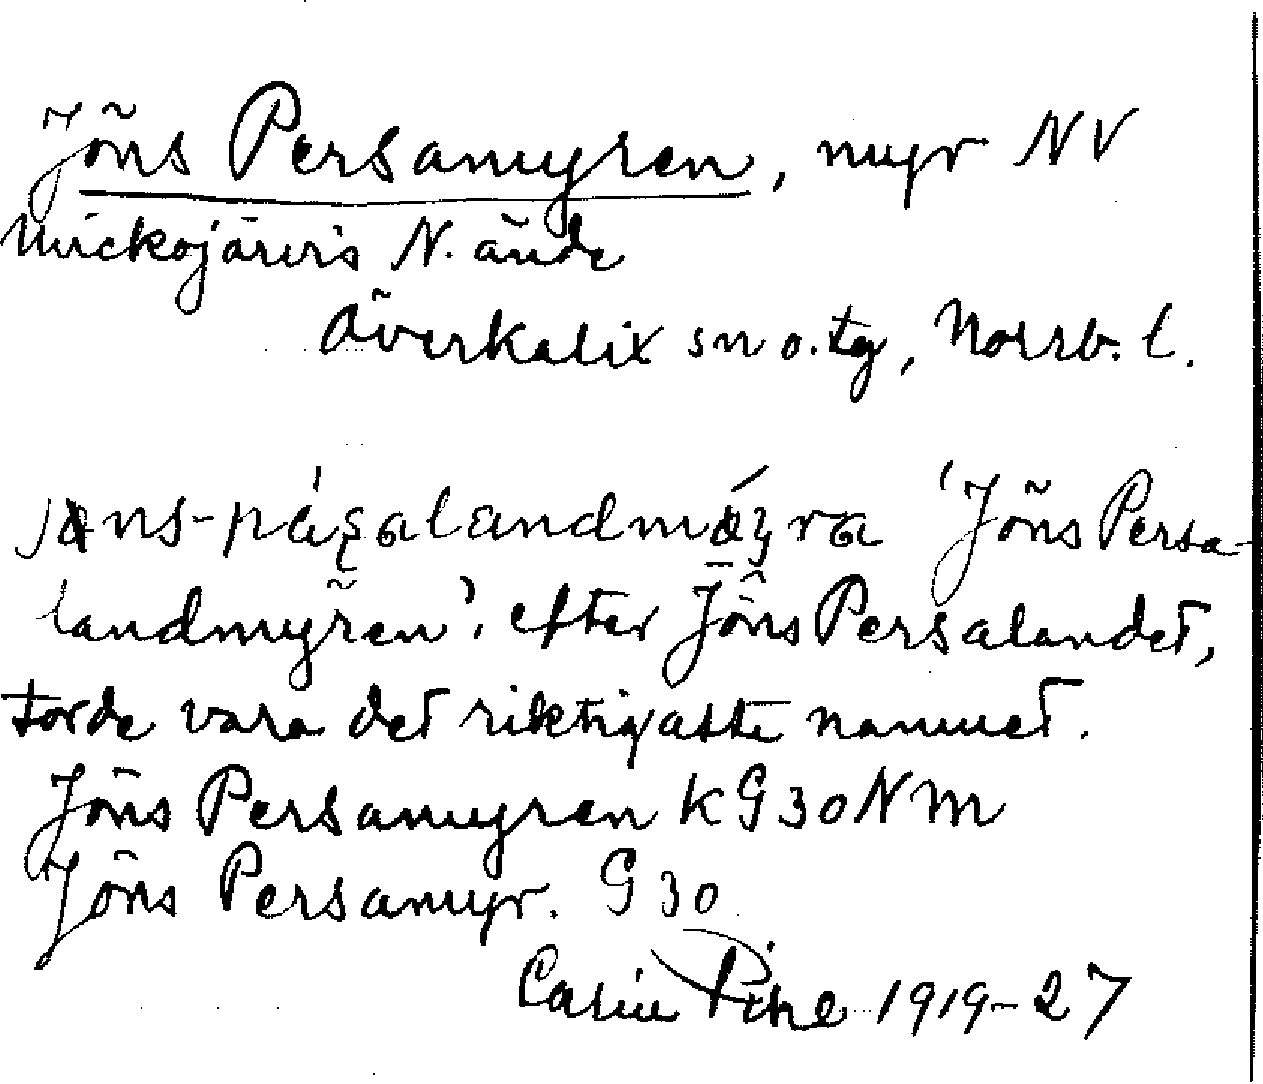 Jöns Persamyren, myr NV
Mickojärvis N. ände
Överkalix sn o. tg, Norrb. l.
'Jöns Persa-
landmyren', efter Jöns Persalandet,
torde vara det riktigaste namnet.
Jöns Persamyren KG30NM
Jöns Persamyr. G30
Carin Pihl 1919-27